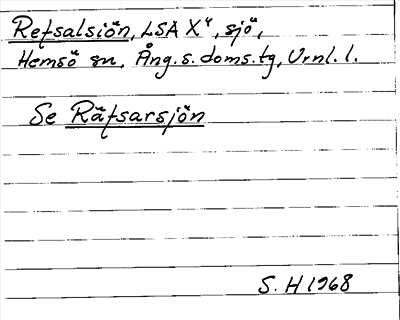 Refsalsiön, LSA X⁴, sjö,
Hemsö sn, Ång. s. doms.tg, Vrnl. l.
Se Räfsarsjön
S. H 1968